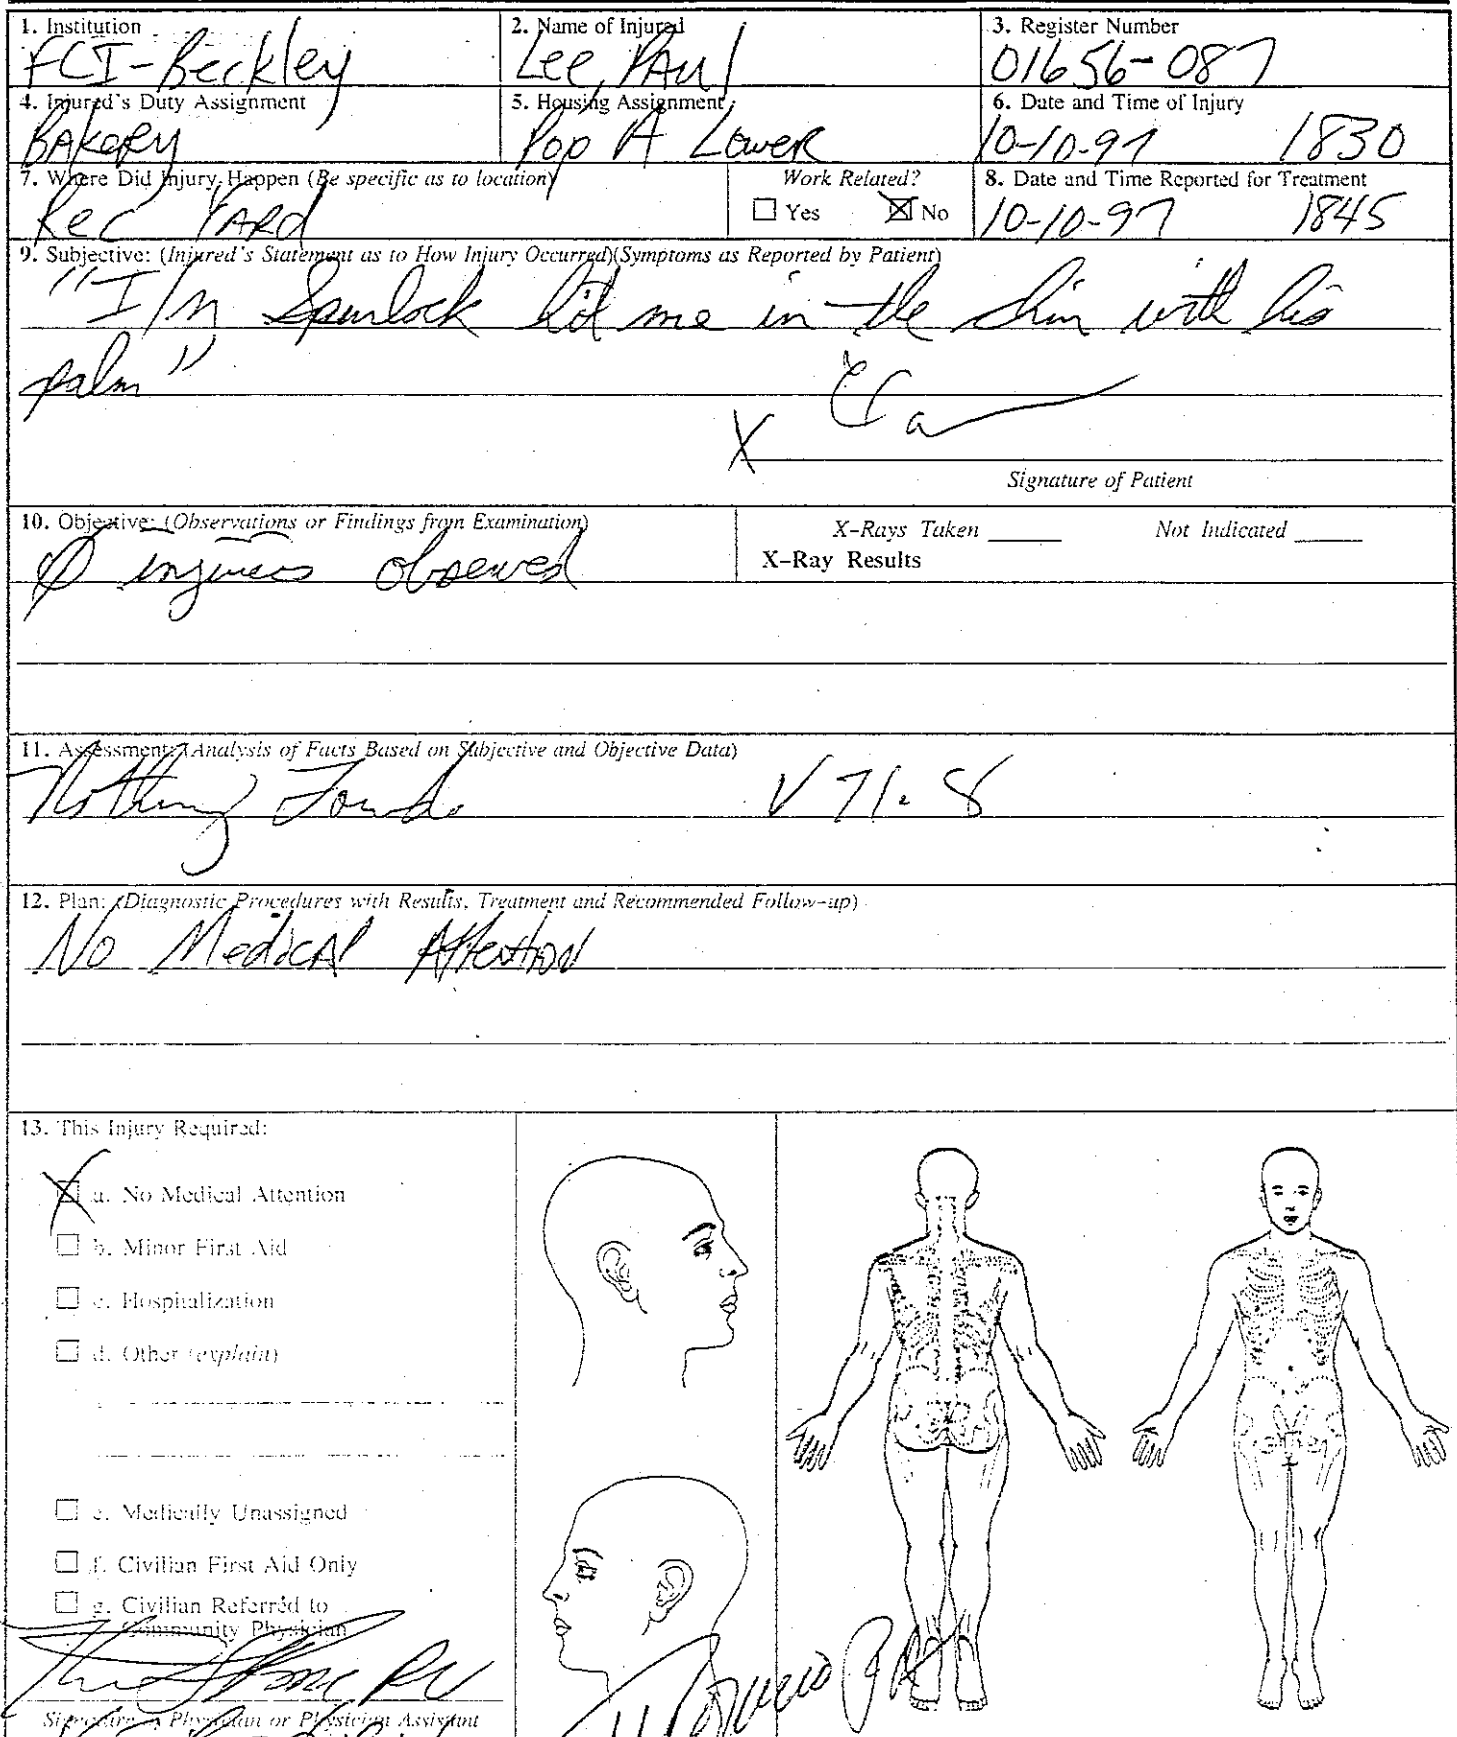 1. Institution
FCI-Beckley
2. Name of Injured
Lee, Paul
3. Register Number
01656-087
4. Injured's Duty Assignment
Bakery
5. Housing Assignment
Pop A Lower
6. Date and Time of Injury
10-10-97 1830
7. Where Did Injury Happen (Be specific as to location)
Rec YARD
Work Related?
☐ Yes ☒ No
8. Date and Time Reported for Treatment
10-10-97 1845
9. Subjective: (Injured's Statement as to How Injury Occurred)(Symptoms as Reported by Patient)
"I/M Spurlock hit me in the shin with his
palm"
X
Signature of Patient
10. Objective: (Observations or Findings from Examination)
Ø injuries observed
X-Rays Taken ____ Not Indicated ____
X-Ray Results
11. Assessment: (Analysis of Facts Based on Subjective and Objective Data)
Nothing Found V71.8
12. Plan: (Diagnostic Procedures with Results, Treatment and Recommended Follow-up)
No Medical Attention
13. This Injury Required:
☒ a. No Medical Attention
☐ b. Minor First Aid
☐ c. Hospitalization
☐ d. Other (explain)
☐ e. Medically Unassigned
☐ f. Civilian First Aid Only
☐ g. Civilian Referred to
Community Physician
Signature of Physician or Physician Assistant